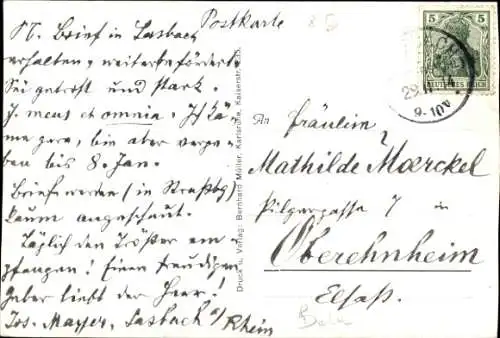 Postkarte
N. Brief in Sasbach
erhalten, weiterbefördert
Sei getrost und stark.
J. meus et omnia. Ich kä-
me gern, bin aber verge-
ben bis 8. Jan.
Briefe werden (in Straßbg)
kaum angeschaut.
Täglich den Tröster em-
pfangen! Einen freudigen
Geber liebt der Herr!
Jos. Mayer, Sasbach a/Rhein
Druck u. Verlag: Bernhard Müller, Karlsruhe, Kaiserstr.
5 5
DEUTSCHES REICH
29.
9-10V
An
Fräulein
Mathilde Moerckel
Pilgergasse 7 in
Oberehnheim
Elsaß.